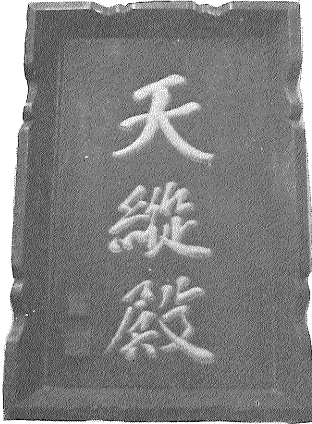 天縱殿